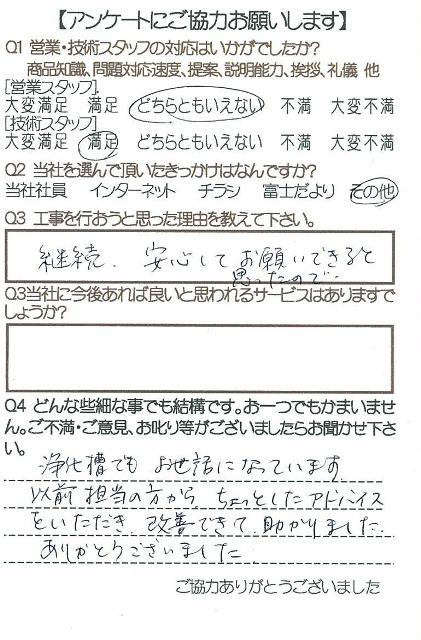 【アンケートにご協力お願いします】
Q1 営業・技術スタッフの対応はいかがでしたか?
商品知識、問題対応速度、提案、説明能力、挨拶、礼儀 他
[営業スタッフ]
大変満足 満足 どちらともいえない 不満 大変不満
[技術スタッフ]
大変満足 満足 どちらともいえない 不満 大変不満
Q2 当社を選んで頂いたきっかけはなんですか?
当社社員 インターネット チラシ 富士だより その他
Q3 工事を行おうと思った理由を教えて下さい。
継続、安心してお願いできると
思ったので…
Q3当社に今後あれば良いと思われるサービスはありますで
しょうか?
Q4 どんな些細な事でも結構です。お一つでもかまいませ
ん。ご不満・ご意見、お叱り等がございましたらお聞かせ下さ
い。
浄化槽でも お世話になっています
以前担当の方から ちょっとしたアドバイス
をいただき、改善できて助かりました。
ありがとうございました
ご協力ありがとうございました